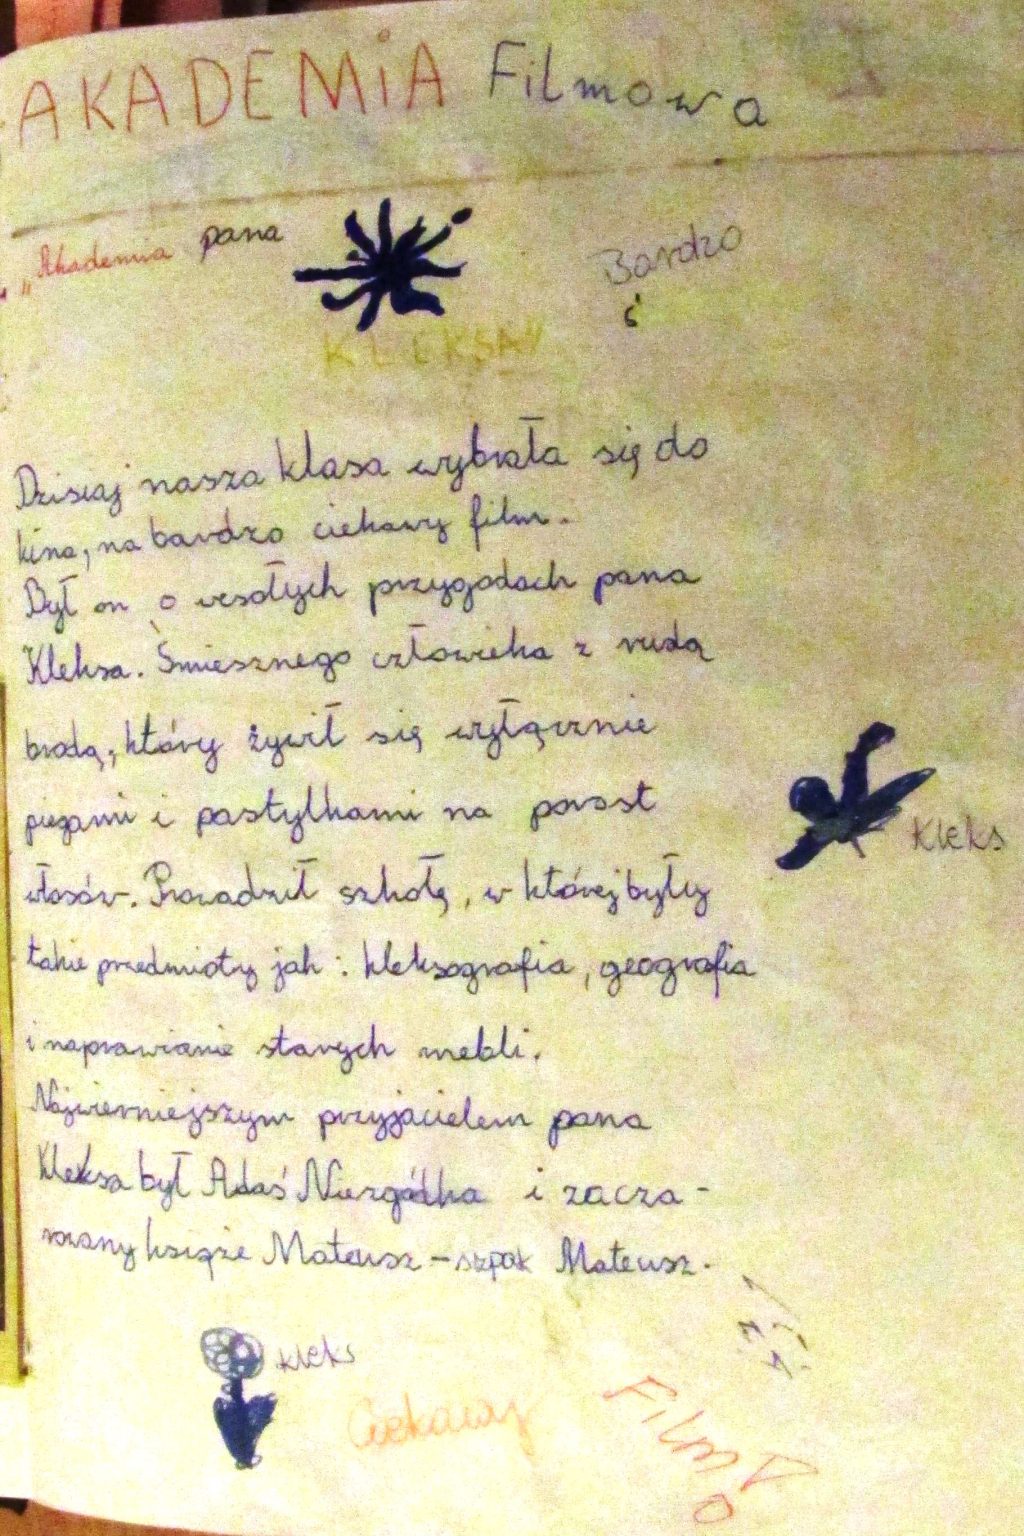 AKADEMiA Filmowa
„Akademia pana
KLEKSA"
Bardzo
6
Dzisiaj nasza klasa wybrała się do
kina, na bardzo ciekawy film.
Był on o wesołych przygodach pana
Kleksa. Śmiesznego człowieka z rudą
brodą, który żywił się wyłącznie
piegami i pastylkami na porost
włosów. Prowadził szkołę, w której były
takie przedmioty jak: kleksografia, geografia
i naprawianie starych mebli.
Najwierniejszym przyjacielem pana
Kleksa był Adaś Niezgódka i zacza-
rowany książe Mateusz - szpak Mateusz.
Kleks
kleks
Ciekawy
Film